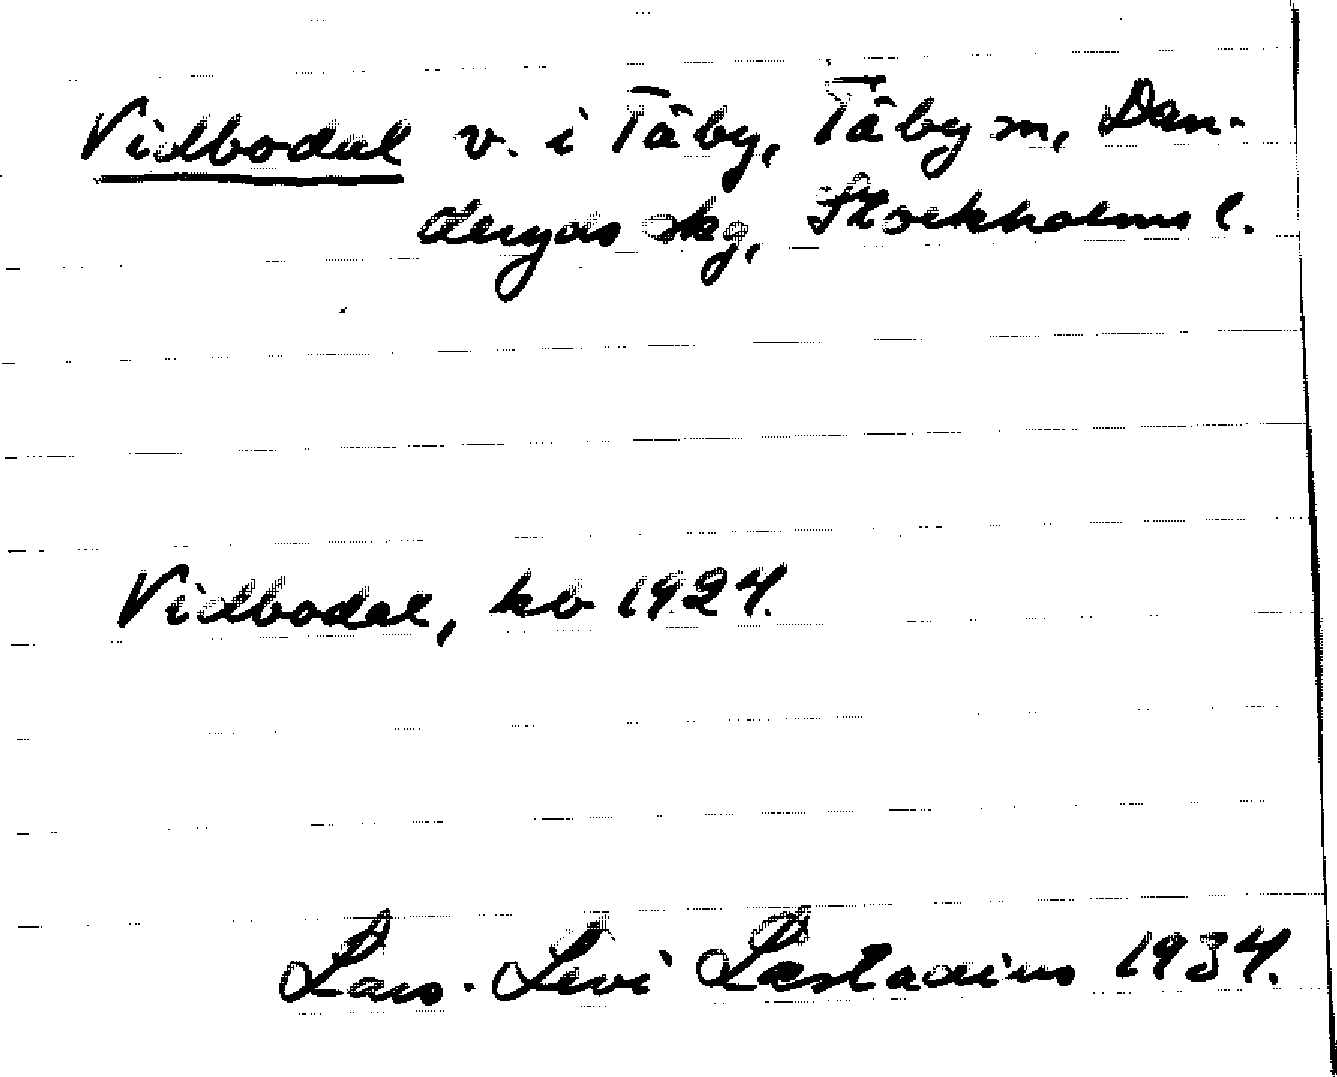 Vidbodal v. i Täby, Täby sn, Dan-
deryds skg, Stockholms l.
Vidbodal, kb 1924.
Lars-Levi Læstadius 1934.